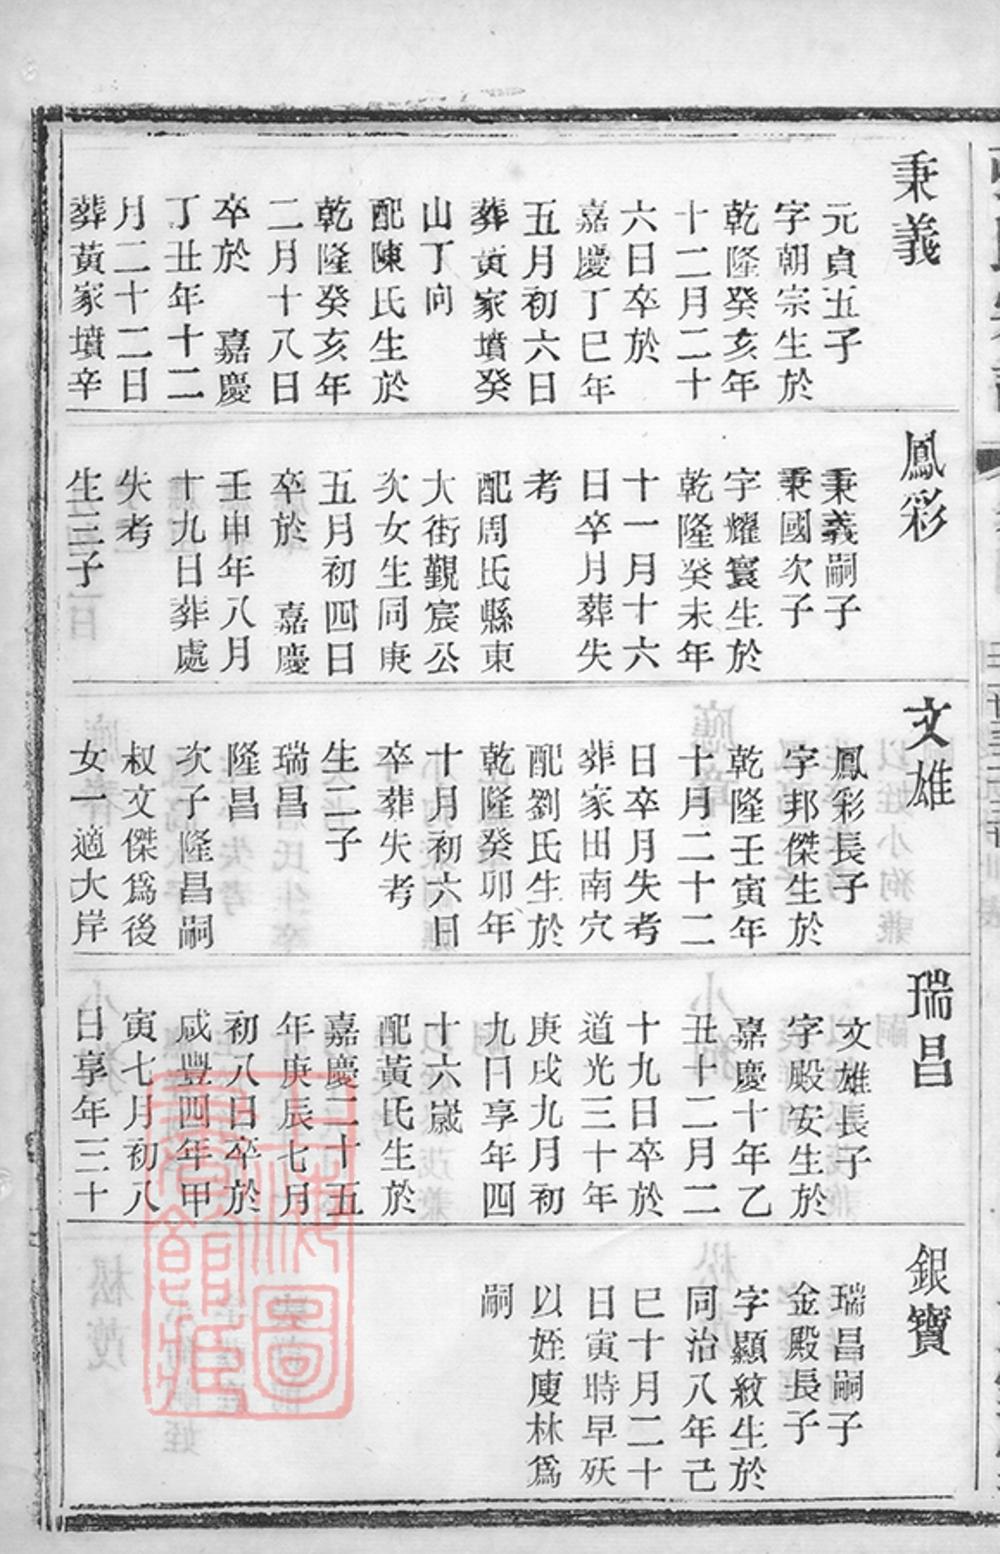 秉義
元貞五子
字朝宗生於
乾隆癸亥年
十二月二十
六日卒於
嘉慶丁巳年
五月初六日
葬黃家墳癸
山丁向
配陳氏生於
乾隆癸亥年
二月十八日
卒於 嘉慶
丁丑年十二
月二十二日
葬黃家墳辛
鳳彩
秉義嗣子
秉國次子
字耀寰生於
乾隆癸未年
十一月十六
日卒月葬失
考
配周氏縣東
大街覲宸公
次女生同庚
五月初四日
卒於 嘉慶
壬申年八月
十九日葬處
失考
生三子
文雄
鳳彩長子
字邦傑生於
乾隆壬寅年
十月二十二
日卒月失考
葬家田南穴
配劉氏生於
乾隆癸卯年
十月初六日
卒葬失考
生二子
瑞昌
隆昌
次子隆昌嗣
叔文傑為後
女一適大岸
瑞昌
文雄長子
字殿安生於
嘉慶十年乙
丑十二月二
十九日卒於
道光三十年
庚戌九月初
九日享年四
十六歲
配黃氏生於
嘉慶二十五
年庚辰七月
初八日卒於
咸豐四年甲
寅七月初八
日享年三十
銀寶
瑞昌嗣子
金殿長子
字顯紋生於
同治八年己
巳十月二十
日寅時早殀
以姪廋林為
嗣
上海圖書館藏